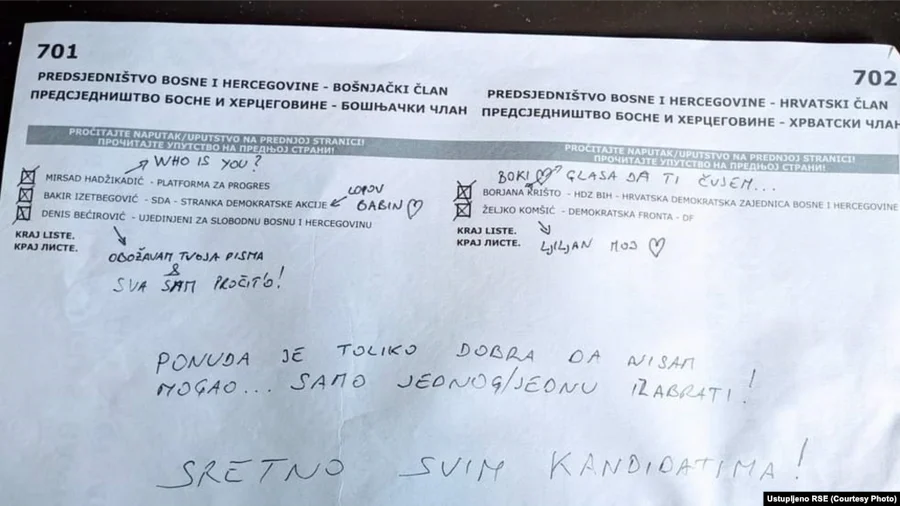 701
PREDSJEDNIŠTVO BOSNE I HERCEGOVINE - BOŠNJAČKI ČLAN
ПРЕДСЈЕДНИШТВО БОСНЕ И ХЕРЦЕГОВИНЕ - БОШЊАЧКИ ЧЛАН
PROČITAJTE NAPUTAK/UPUTSTVO NA PREDNJOJ STRANICI!
ПРОЧИТАЈТЕ УПУТСТВО НА ПРЕДЊОЈ СТРАНИ!
WHO IS YOU?
MIRSAD HADŽIKADIĆ - PLATFORMA ZA PROGRES
BAKIR IZETBEGOVIĆ - SDA - STRANKA DEMOKRATSKE AKCIJE
LOPOV
BABIN
DENIS BEĆIROVIĆ - UJEDINJENI ZA SLOBODNU BOSNU I HERCEGOVINU
KRAJ LISTE.
КРАЈ ЛИСТЕ.
OBOŽAVAM TVOJA PISMA
&
SVA SAM PROČIT'O!
702
PREDSJEDNIŠTVO BOSNE I HERCEGOVINE - HRVATSKI ČLAN
ПРЕДСЈЕДНИШТВО БОСНЕ И ХЕРЦЕГОВИНЕ - ХРВАТСКИ ЧЛАН
PROČITAJTE NAPUTAK/UPUTSTVO NA PREDNJOJ STRANICI!
ПРОЧИТАЈТЕ УПУТСТВО НА ПРЕДЊОЈ СТРАНИ!
BOKI GLASA DA TI ČUJEM...
BORJANA KRIŠTO - HDZ BIH - HRVATSKA DEMOKRATSKA ZAJEDNICA BOSNE I HERCEGOVINE
ŽELJKO KOMŠIĆ - DEMOKRATSKA FRONTA - DF
KRAJ LISTE.
КРАЈ ЛИСТЕ.
LJILJAN MOJ
PONUDA JE TOLIKO DOBRA DA NISAM
MOGAO... SAMO JEDNOG/JEDNU IZABRATI!
SRETNO SVIM KANDIDATIMA!
Ustupljeno RSE (Courtesy Photo)